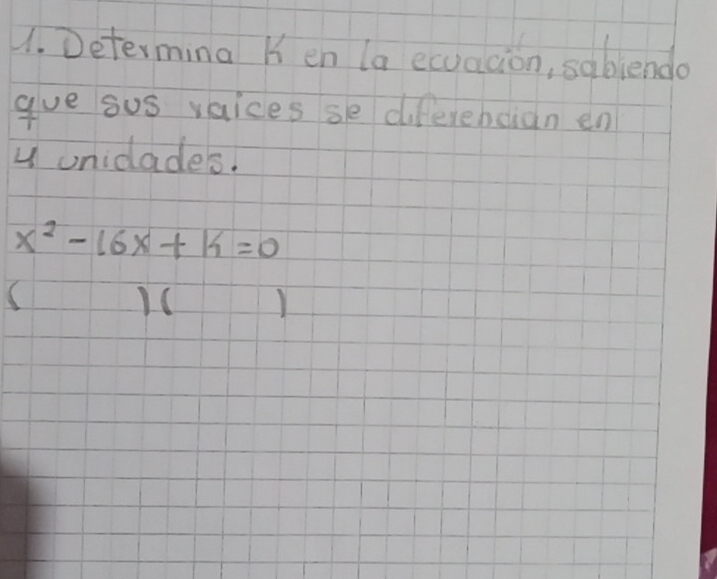 1. Determina K en la ecuación, sabiendo
que sus raices se diferencian en
4 unidades.
x² - 16x + K = 0
(          ) (          )